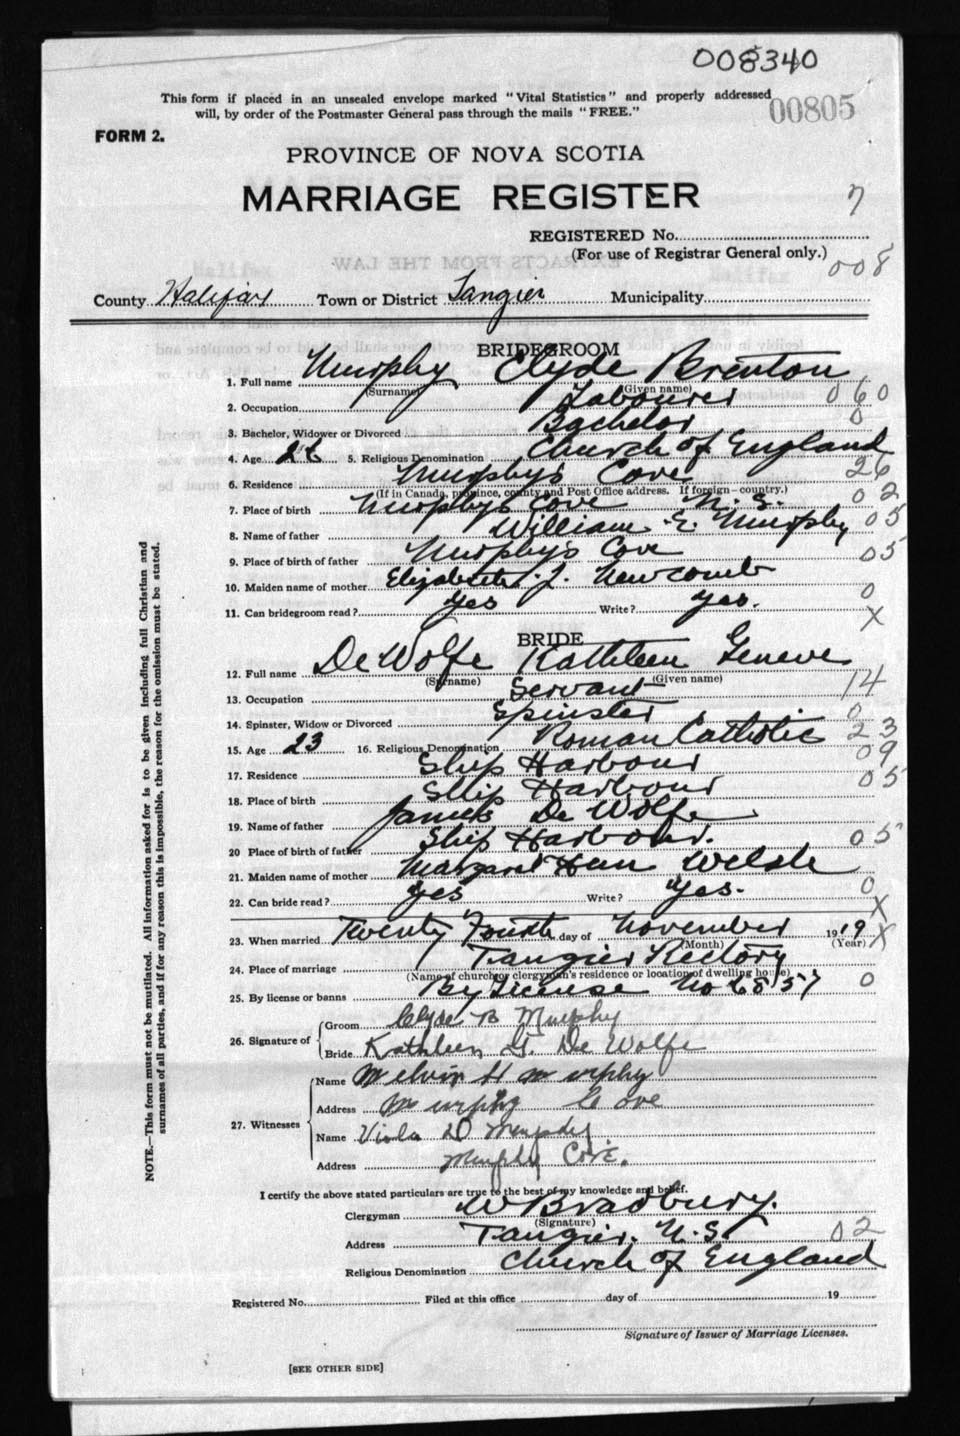 008340
This form if placed in an unsealed envelope marked "Vital Statistics" and properly addressed
will, by order of the Postmaster General pass through the mails "FREE."
00805
FORM 2.
PROVINCE OF NOVA SCOTIA
MARRIAGE REGISTER
7
REGISTERED No.
(For use of Registrar General only.)
008
County Halifax Town or District Tangier Municipality
BRIDEGROOM
1. Full name Murphy Clyde Brenton
(Surname) (Given name)
2. Occupation Labourer 060
3. Bachelor, Widower or Divorced Bachelor 0
4. Age 26 5. Religious Denomination Church of England
6. Residence Murphys Cove 26
(If in Canada, province, county and Post Office address. If foreign—country.)
7. Place of birth Murphys Cove N.S. 02
8. Name of father William E. Murphy 05
9. Place of birth of father Murphys Cove 05
10. Maiden name of mother Elizabeth J. Newcomb 0
11. Can bridegroom read? yes Write? yes. X
BRIDE
12. Full name DeWolfe Kathleen Geneve
(Surname) (Given name)
13. Occupation Servant 14
14. Spinster, Widow or Divorced Spinster 0
15. Age 23 16. Religious Denomination Roman Catholic 23
17. Residence Ship Harbour 09
18. Place of birth Ship Harbour 05
19. Name of father James De Wolfe
20 Place of birth of father Ship Harbour. 05
21. Maiden name of mother Margaret Ann Welsh
22. Can bride read? yes Write? yes. 0
X
23. When married Twenty Fourth day of November 1919 X
(Month) (Year)
24. Place of marriage Tangier Rectory
(Name of church or clergyman's residence or location of dwelling house)
25. By license or banns By License No 6857 0
26. Signature of Groom Clyde B Murphy
Bride Kathleen G. De Wolfe
27. Witnesses Name Melvin H Murphy
Address Murphy Cove
Name Viola D Murphy
Address Murphy Cove.
I certify the above stated particulars are true to the best of my knowledge and belief.
Clergyman W Bradbury.
(Signature)
Address Tangier. N.S. 02
Religious Denomination Church of England
Registered No. Filed at this office day of 19
Signature of Issuer of Marriage Licenses.
[SEE OTHER SIDE]
NOTE.—This form must not be mutilated. All information asked for is to be given including full Christian and
surnames of all parties, and if for any reason this is impossible, the reason for the omission must be stated.